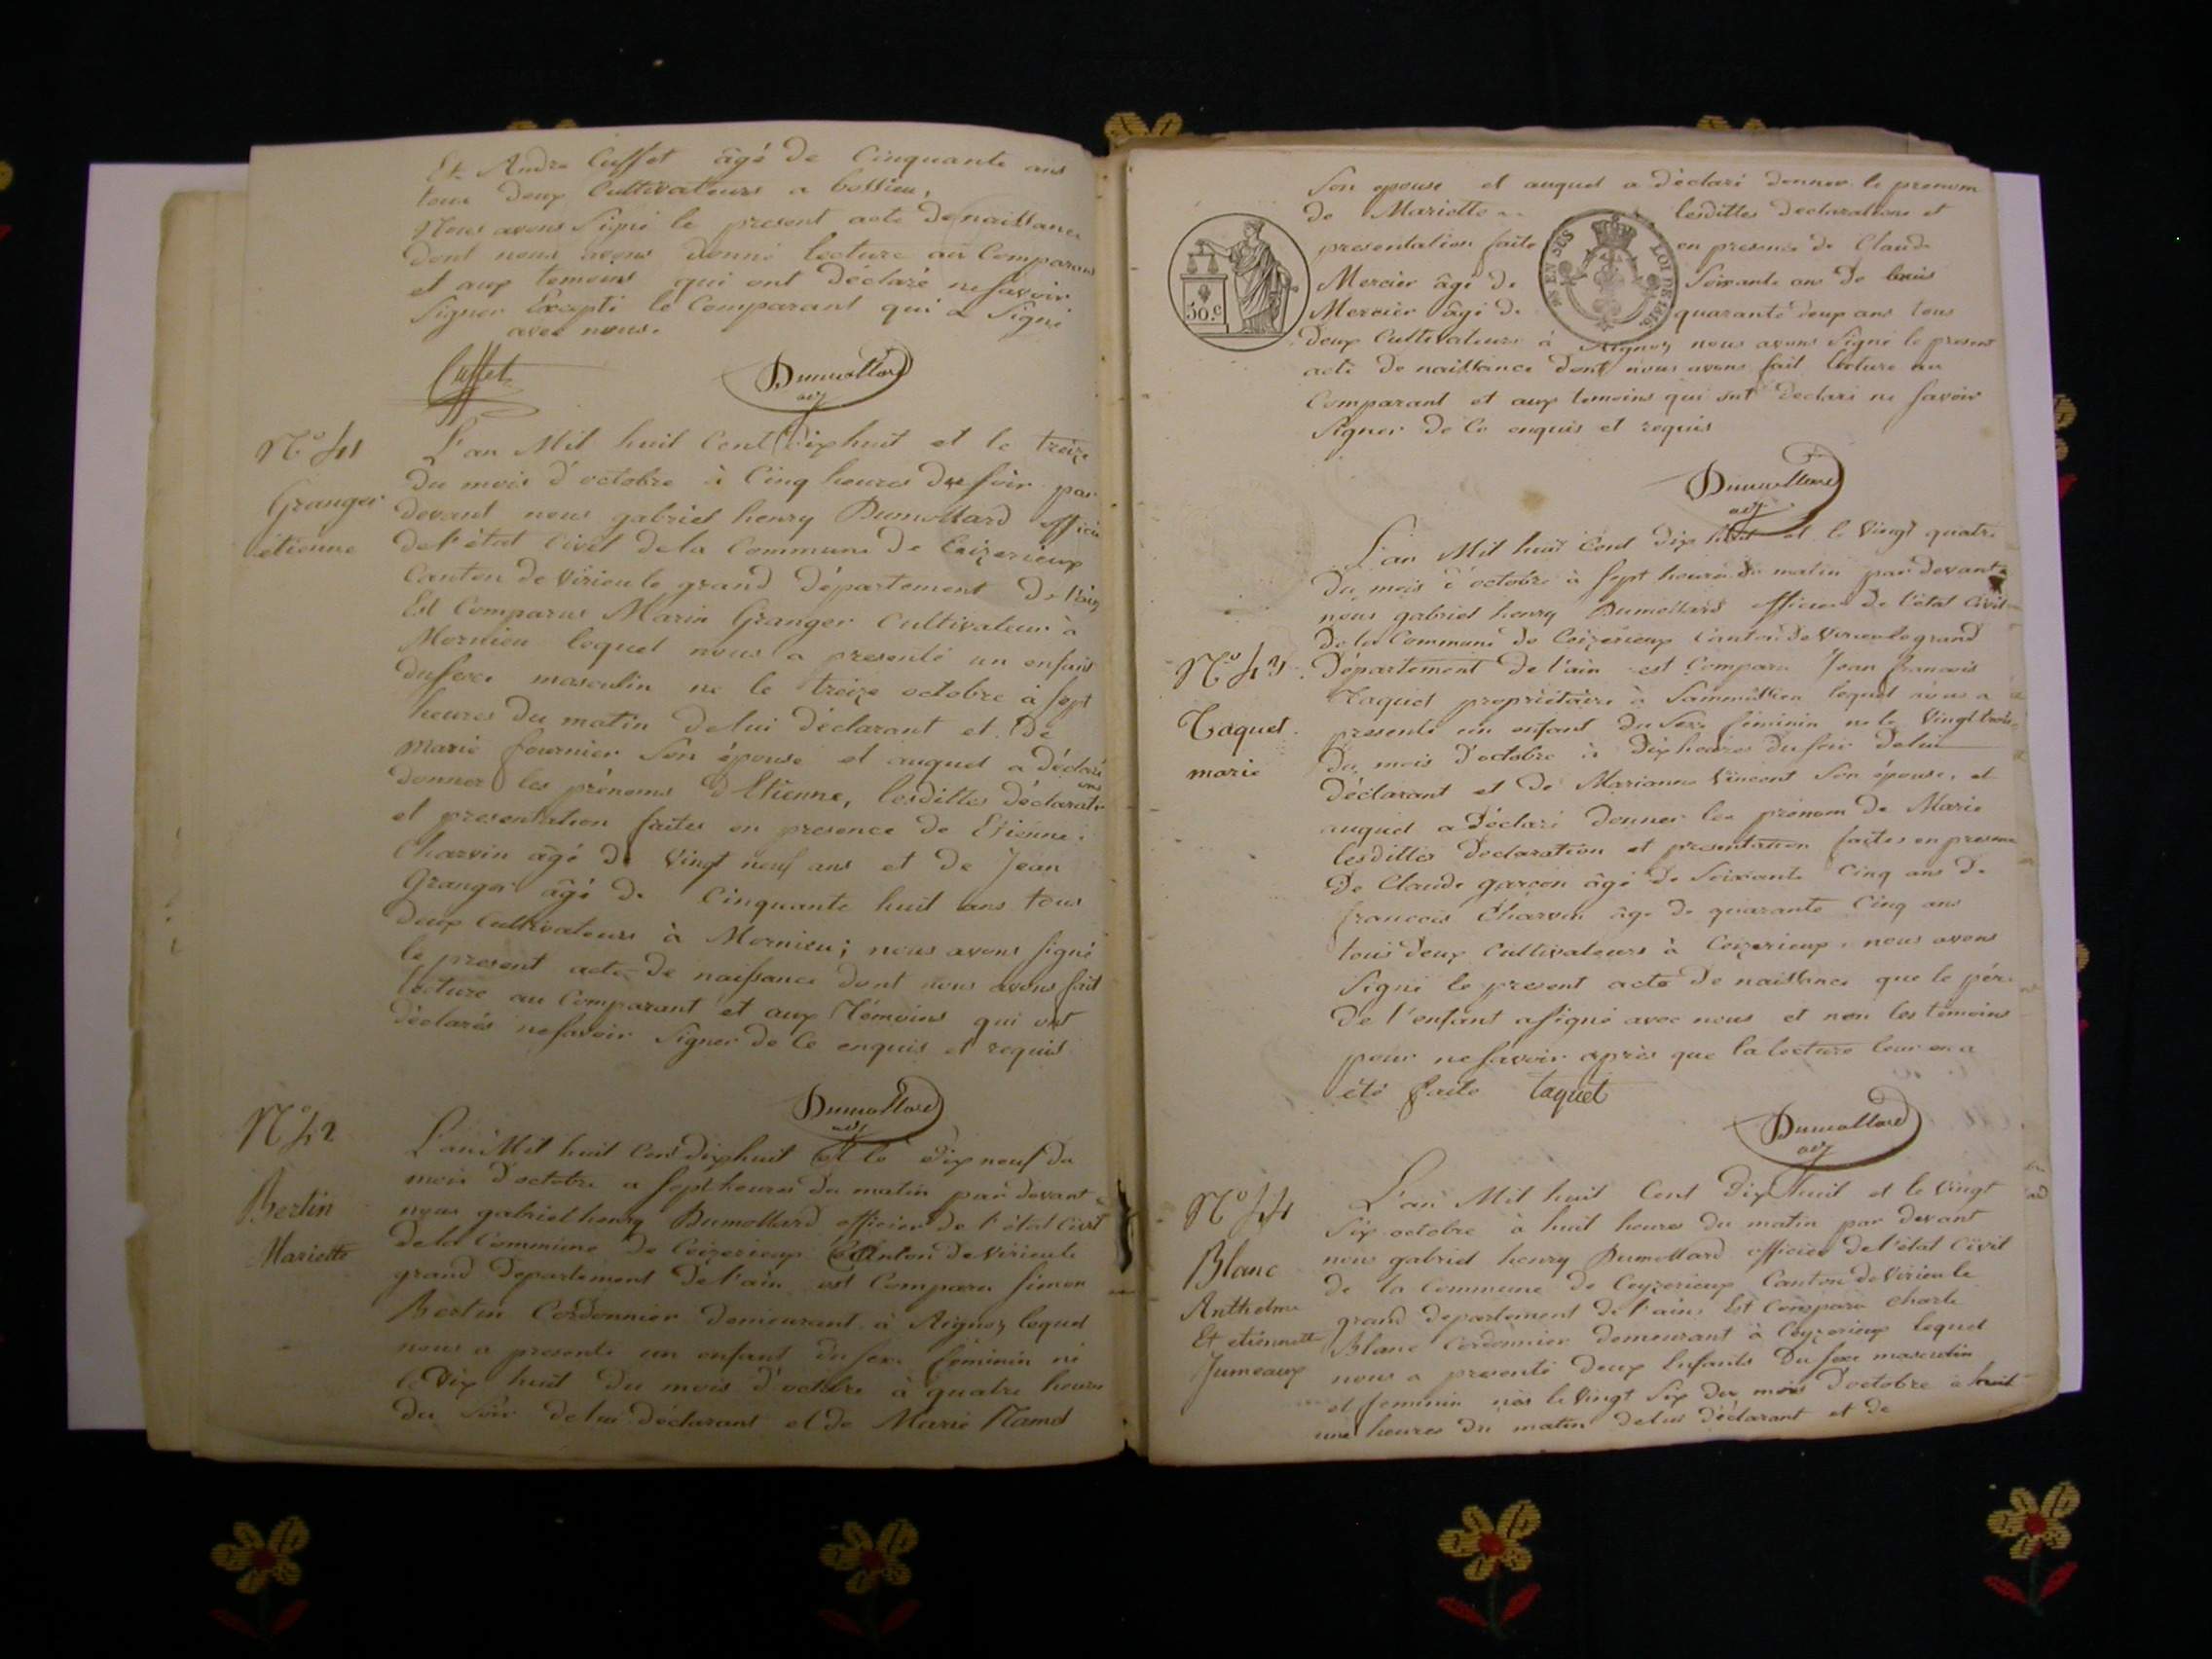 Et André Cuffet âgé de Cinquante ans
tous deux Cultivateurs a bossieu,
Nous avons Signé le present acte de naissance
dont nous avons donné lecture au Comparant
et aux temoins qui ont déclaré ne savoir
Signer Excepté le Comparant qui a Signé
avec nous.
Cuffet
Dumollard
adj
N° 41
Granger
étienne
L'an Mil huit Cent dix huit et le treize
du mois d'octobre à Cinq heures du soir par
devant nous gabriel henry Dumollard officier
de l'état Civil de la Commune de Ceizerieux
Canton de Virieu le grand Département de l'ain
Est Comparus Marin Granger Cultivateur à
Mornieu lequel nous a presenté un enfant
du sexe masculin né le treize octobre à sept
heures du matin de lui déclarant et de
Marie fournier Son épouse et auquel a déclaré
donner les prénoms d'Etienne, lesdittes déclarations
et presentation faites en presence de Etienne
Charvin âgé de vingt neuf ans et de Jean
Granger âgé de Cinquante huit ans tous
deux Cultivateurs à Mornieu; nous avons signé
le present acte de naissance dont nous avons fait
lecture au Comparant et aux Témoins qui ont
déclarés ne savoir Signer de Ce enquis et requis
Dumollard
adj
N° 42
Bertin
Mariette
L'an Mil huit Cent dix huit Et le dix neuf du
mois d'octobre a sept heures du matin par devant
nous gabriel henry Dumollard officier de l'état Civil
de la Commune de Ceizerieux Canton de Virieu le
grand Departement de l'ain est Comparu Simon
Bertin Cordonnier demeurant à Aignoz lequel
nous a presenté un enfant du sexe féminin né
le dix huit du mois d'octobre à quatre heures
du soir de lui déclarant et de Marie
Son epouse et auquel a déclaré donner le prenom
de Mariette lesdittes declarations et
presentation faite en presence de Claude
Mercier âgé de Soixante ans de
Mercier âgé de quarante deux ans tous
30.C
EN SUS
LOI DE 1816.
deux Cultivateurs à Aignoz nous avons Signé le present
acte de naissance dont nous avons fait lecture au
Comparant et aux temoins qui ont declaré ne savoir
Signer de Ce enquis et requis
Dumollard
adj
N° 43
Taquet
marie
L'an Mil huit Cent dix huit et le Vingt quatre
du mois d'octobre à sept heures du matin par devant
nous gabriel henry Dumollard officier de l'état Civil
de la Commune de Ceizerieux Canton de Virieu le grand
Département de l'ain est Comparu Jean francois
Taquet propriétaire à lequel nous a
presenté un enfant du Sexe féminin né le Vingt trois
du mois d'octobre à dix heures du soir de lui
déclarant et de Marianne Vincent Son épouse, et
auquel a déclaré donner les prénom de Marie
lesdittes declaration et presentation faites en presence
de Claude garcon âgé de Soixante Cinq ans de
francois Charvin âgé de quarante Cinq ans
tous deux Cultivateurs à Ceizerieux, nous avons
Signé le present acte de naissance que le père
de l'enfant a signé avec nous et non les témoins
pour ne savoir après que la lecture leur en a
été faite Taquet
Dumollard
adj
N° 44
Blanc
Anthelme
Et etiennette
Jumeaux
L'an Mil huit Cent dix huit et le Vingt
Six octobre à huit heures du matin par devant
nous gabriel henry Dumollard officier de l'état Civil
de la Commune de Ceyzerieux Canton de Virieu le
grand departement de l'ain Est Comparu Charle
Blanc Cordonnier demeurant à Ceyzerieux lequel
nous a presenté deux Enfants du sexe masculin
et feminin nés le Vingt Six du mois d'octobre à
une heures du matin de lui déclarant et de